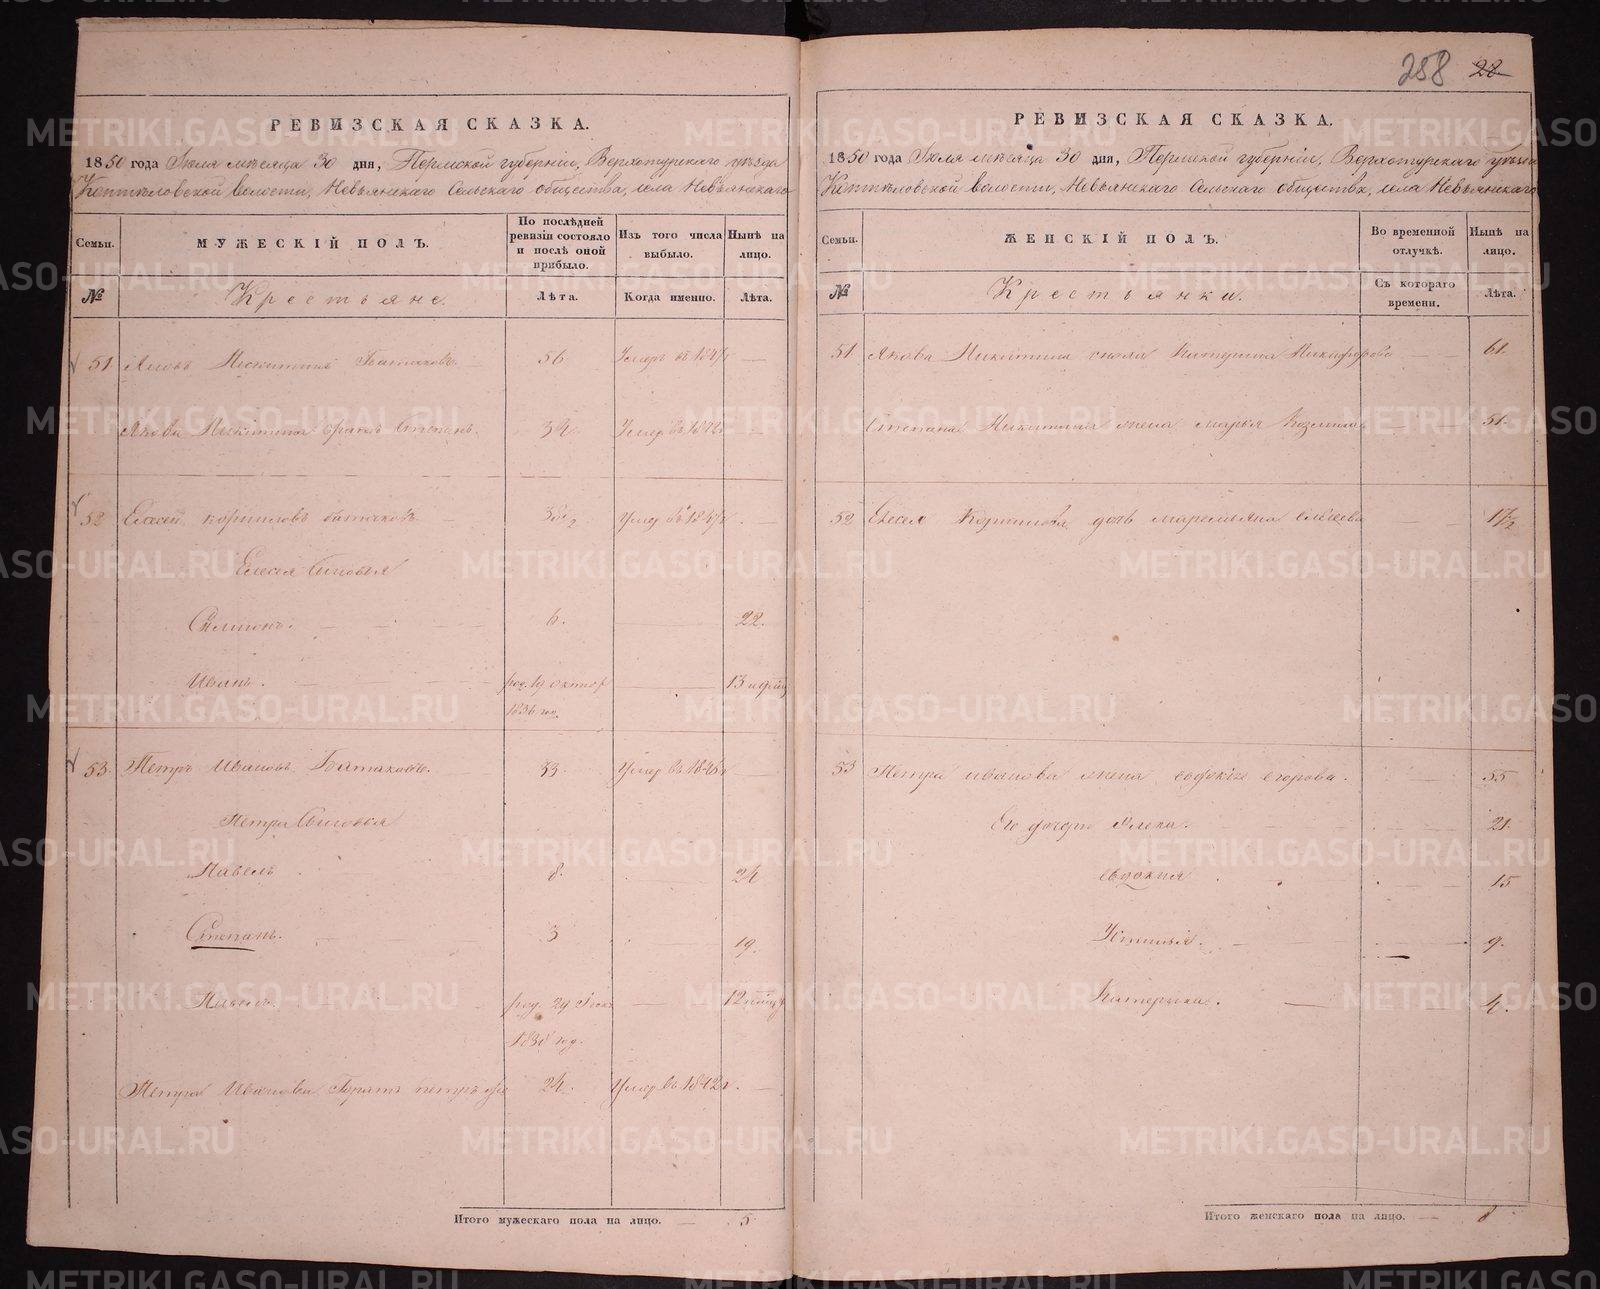 288 28
РЕВИЗСКАЯ СКАЗКА.
1850 года Июля месяца 30 дня, Пермской губернии, Верхотурскаго уезда
Коптеловской волости, Невьянскаго Сельскаго общества, села Невьянскаго
Семьи.
МУЖЕСКІЙ ПОЛЪ.
По послѣдней ревизіи состояло и послѣ оной прибыло.
Изъ того числа выбыло.
Нынѣ на лицо.
№
Крестьяне.
Лѣта.
Когда именно.
Лѣта.
51 Яковъ Никитинъ Батаковъ 56 Умеръ въ —
Якова Никитина братъ Степанъ. 34 Умеръ въ 1842 —
52 Елесей Корниловъ Батаковъ Умеръ въ —
Елесея сыновья
6. 22.
Иванъ. род. 19 октяб 13
1836 год.
53. Петръ Ивановъ Батаковъ. 39. Умер въ —
Петра Сыновья
Павелъ 8. 24
Степанъ. 3 19.
род. 29 12
1838 год.
Петра Иванова Братъ петръ же 24. Умер въ 1842 —
Итого мужескаго пола на лицо. — 5
РЕВИЗСКАЯ СКАЗКА.
1850 года Июля месяца 30 дня, Пермской губерніи, Верхотурскаго уезда
Коптеловской волости, Невьянскаго Сельскаго общества, села Невьянскаго
Семьи.
ЖЕНСКІЙ ПОЛЪ.
Во временной отлучкѣ.
Нынѣ на лицо.
№
Крестьянки.
Съ котораго времени.
Лѣта.
51 Якова Никитина жена Катерина Никифорова 61.
Степана Никитина жена марья Козмина 51.
52 Елесея Корнилова дочь маремьяна елесеева 17½
53 Петра иванова жена егорова. 55
Его дочери 21.
евдокия 15
Устинья. 9.
Катерина. 4.
Итого женскаго пола на лицо. — 8
METRIKI.GASO-URAL.RU